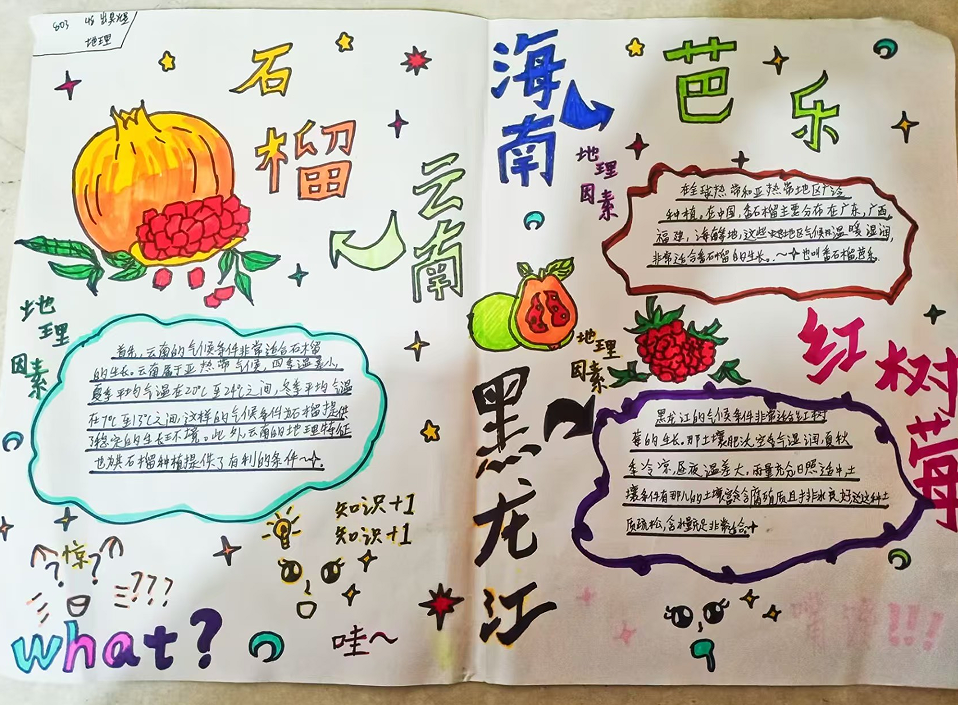 803
地理
石
榴
云
南
地
理
因
素
首先,云南的气候条件非常适合石榴
的生长。云南属于亚热带气候,四季温差小,
夏季平均气温在20℃至24℃之间,冬季平均气温
在7℃至15℃之间,这样的气候条件为石榴提供
了稳定的生长环境。此外,云南的地理特征
也为其石榴种植提供了有利的条件~
知识+1
知识+1
惊
? ?
???
what?
哇~
海
南
芭
乐
地
理
因
素
在全球热带和亚热带地区广泛
种植,在中国,番石榴主要分布在广东,广西,
福建,海南等地,这些地区气候温暖湿润,
非常适合番石榴的生长。~也叫番石榴芭乐
红
树
莓
地
理
因
素
黑
龙
江
黑龙江的气候条件非常适合红树
莓的生长。那土壤肥沃,空气湿润,夏秋
季冷凉,昼夜温差大,雨量充分日照适中,土
壤条件有那儿的土壤富含腐殖质且排水良好这这种土
质疏松,含水量充足非常适合
!!!